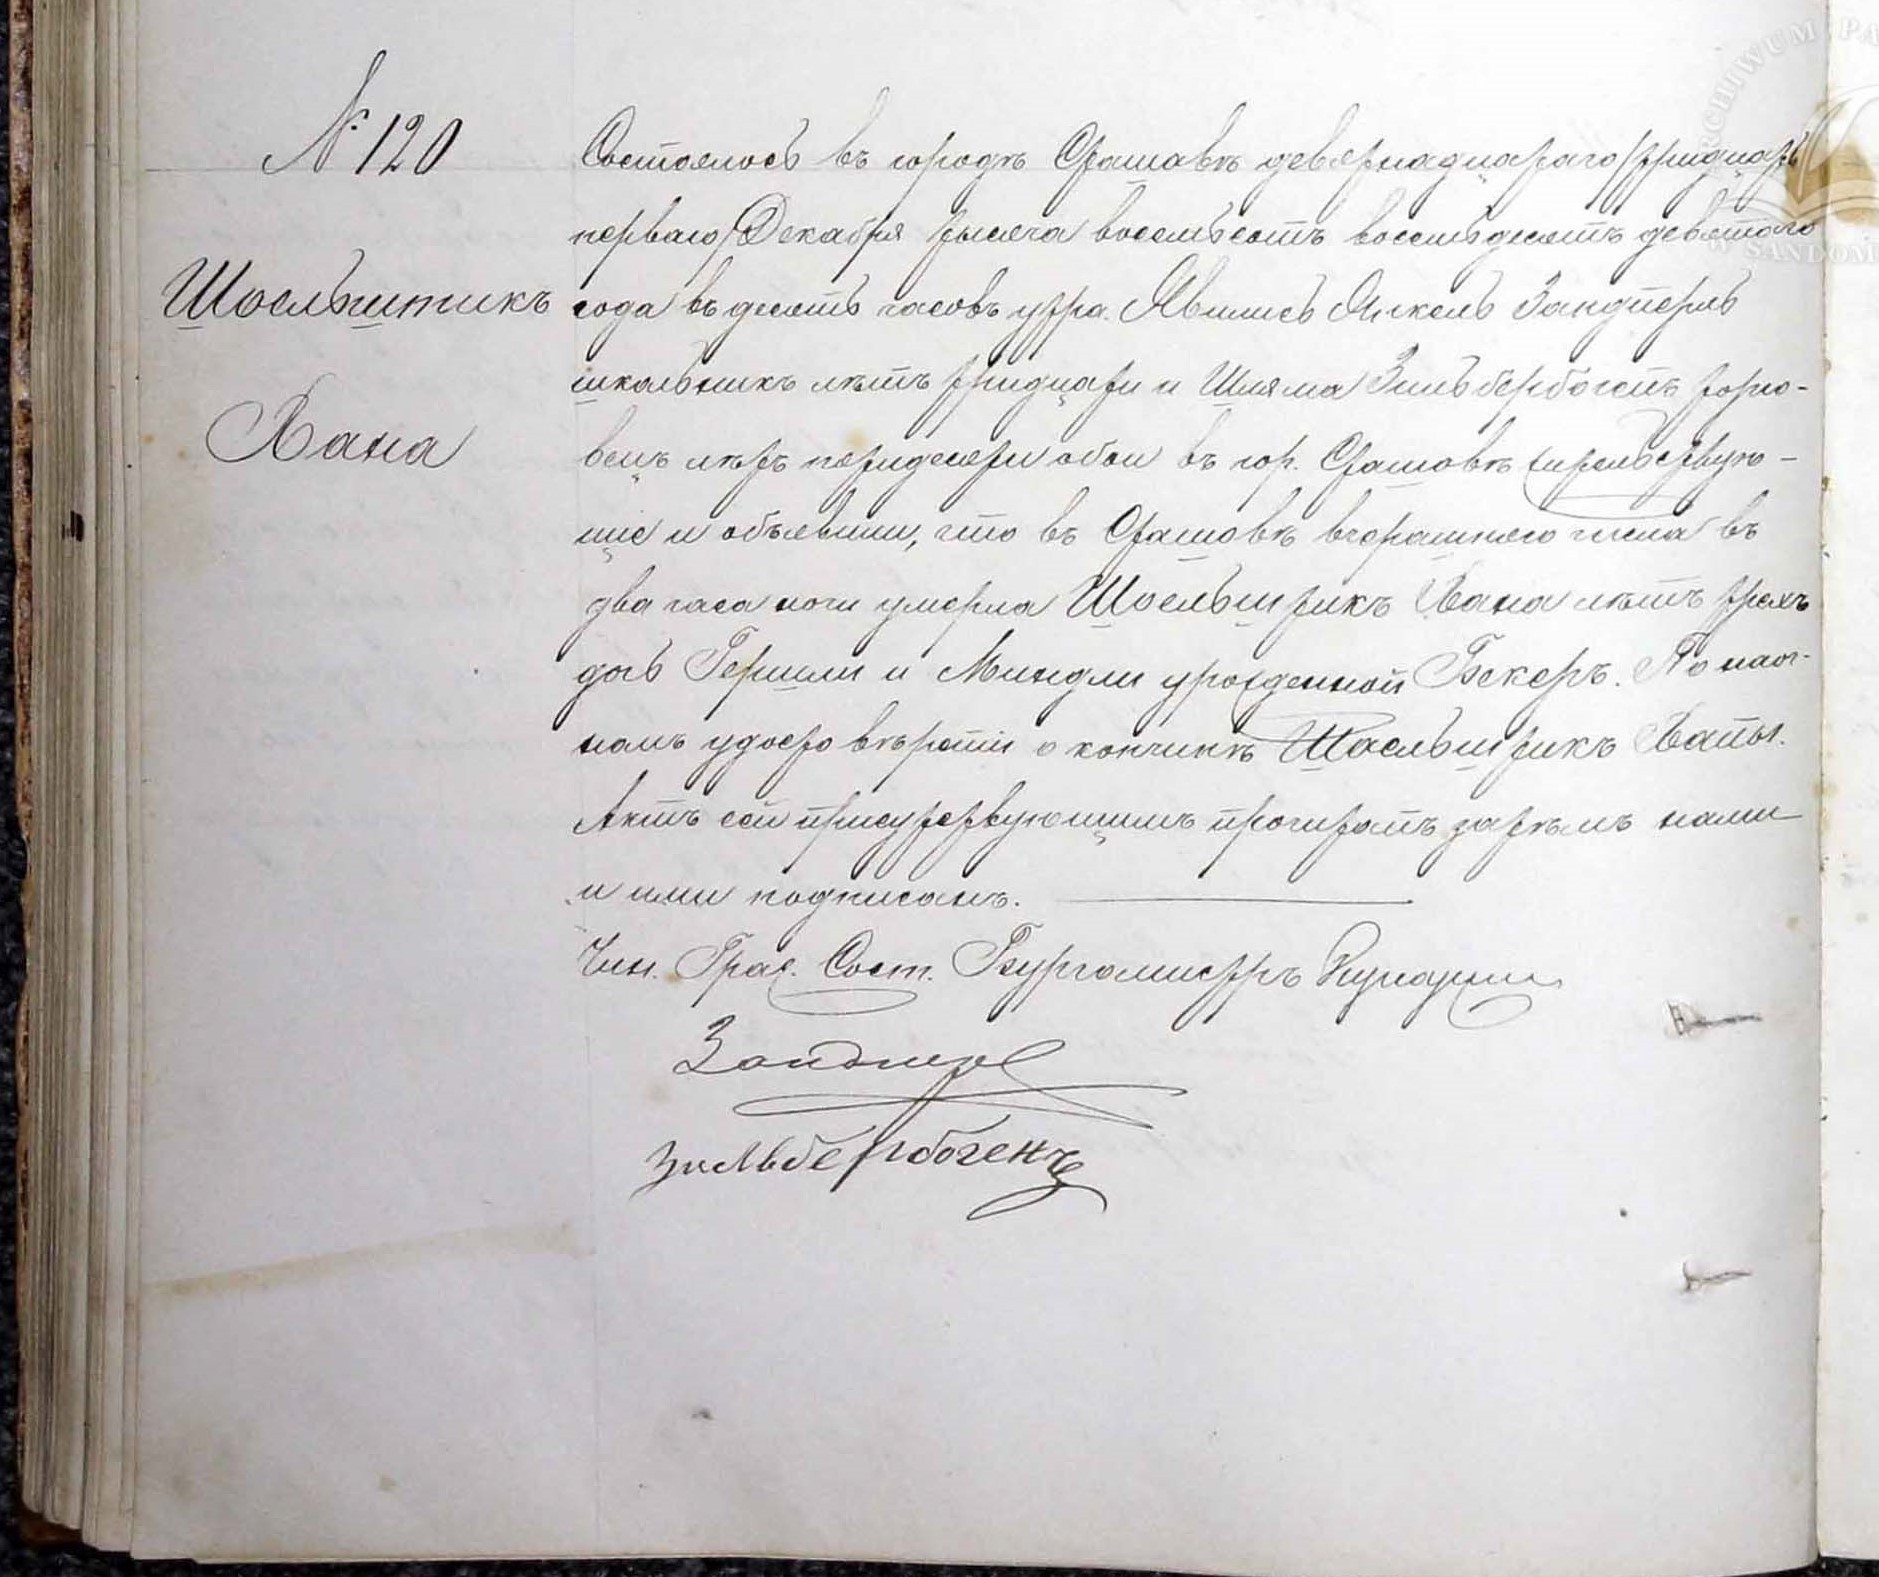 № 120
Шоельштикъ
Хана
Состоялось въ городѣ Сташовѣ девятнадцатаго/тридцать
перваго/Декабря тысяча восемьсотъ восемьдесятъ девятого
года въ десять часовъ утра. Явились Анкель Зандперль
школьникъ лѣтъ тридцати и Шляма Зильбербогенъ торго-
вецъ лѣтъ пятидесяти обои въ гор. Сташовѣ жительствую-
щіе и объявили, что въ Сташовѣ вчерашнего числа въ
два часа ночи умерла Шоельштикъ Хана лѣтъ трехъ
дочь Гершли и Миндли урожденной Бекеръ. По наоч-
номъ удостовѣреніи о кончинѣ Шоельштикъ Ханы.
Актъ сей присутствующимъ прочитанъ затѣмъ нами
и ими подписанъ.
Чин. Граж. Сост. Бургомистръ
Зандперль
Зильбербогенъ
ARCHIWUM PA
W SANDOM